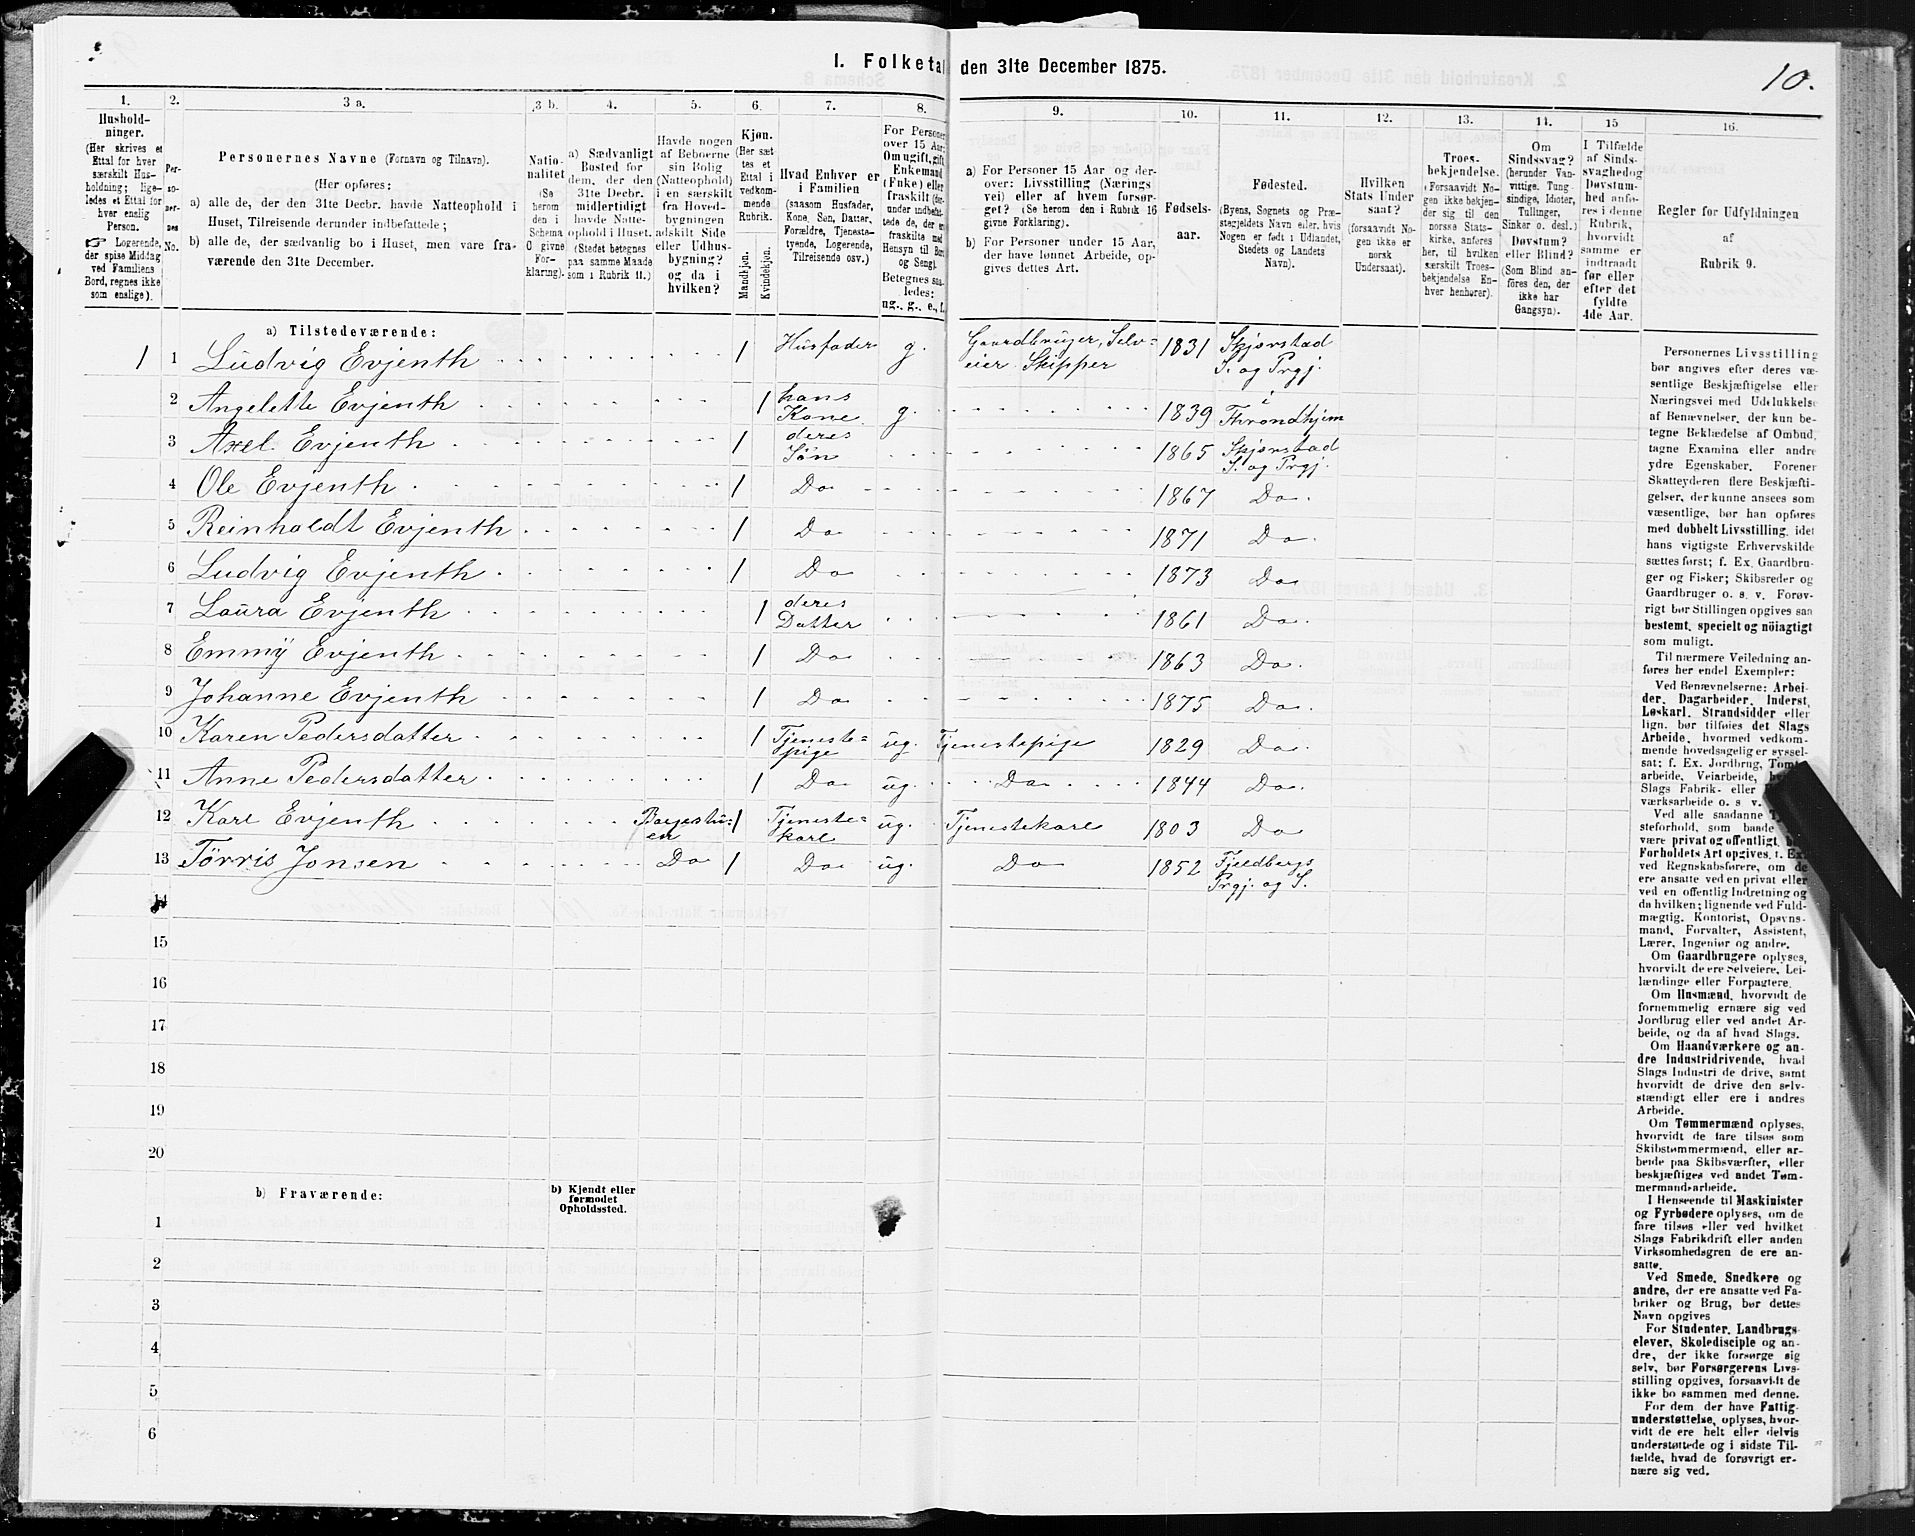 1. Folketal den 31te December 1875.
10.
1.
Hushold-
ninger.
(Her skrives et
Ettal for hver
særskilt Hus-
holdning; lige-
ledes et Ettal for
hver enslig
Person.
Logerende,
der spise Middag
ved Familiens
Bord, regnes ikke
som enslige).
2.
Per-
so-
ner-
nes
No.
3 a.
Personernes Navne (Fornavn og Tilnavn).
(Her opføres:
a) alle de, der den 31te Decbr. havde Natteophold i
Huset, Tilreisende derunder indbefattede;
b) alle de, der sædvanlig bo i Huset, men vare fra-
værende den 31te December.
3 b.
Natio-
nalitet
(Se
herom
den i
Schema
O givne
For-
klaring).
4.
a) Sædvanligt
Bosted for
dem, der den
31te Decbr.
midlertidigt
havde Natte-
ophold i Huset.
(Stedet betegnes
paa samme Maade
som i Rubrik 11.)
5.
Havde nogen
af Beboerne
sin Bolig
(Natteophold)
i en særskilt
fra Hoved-
bygningen
adskilt Side
eller Udhus-
bygning?
og da i
hvilken?
6.
Kjøn.
(Her sæt
tes et
Ettal i
vedkom-
mende
Rubrik.
Mandkjøn.
Kvindekjøn.
7.
Hvad Enhver er
i Familien
(saasom Husfader,
Kone, Søn, Datter,
Forældre, Tjeneste-
tyende, Logerende,
Tilreisende osv.)
8.
For Personer
over 15 Aar:
Om ugift, gift,
Enkemand
(Enke) eller
fraskilt (der-
under indbefat-
tede, de, der ere
fraskilte med
Hensyn til Bord
og Seng).
Betegnes saa-
ledes:
ug., g., e., f.
9.
a) For Personer 15 Aar og der-
over: Livsstilling (Nærings
vei) eller af hvem forsør-
get? (Se herom den i Rubrik 16
givne Forklaring).
b) For Personer under 15 Aar,
der have lønnet Arbeide, op-
gives dettes Art.
10.
Fødsels-
aar.
11.
Fødested.
(Byens, Sognets og Præ-
stegjeldets Navn eller, hvis
Nogen er født i Udlandet,
Stedets og Landets
Navn).
12.
Hvilken
Stats Under
saat?
(forsaavidt No-
gen ikke er
norsk
Undersaat).
13.
Troes-
bekjendelse.
(Forsaavidt No-
gen ikke bekjen-
der sig til den
norske Stats-
kirke, anføres
her, til hvilken
særskilt Troes-
bekjendelse En-
hver henhører).
14.
Om
Sindssvag?
(herunder Van-
vittige, Tung-
sindige, Idioter,
Tullinger,
Sinker o. desl.)
Døvstum?
eller Blind?
(Som Blind an-
føres den, der
ikke har
Gangsyn).
15
I Tilfælde
af Sinds-
svaghed og
Døvstum-
hed anfø-
res i denne
Rubrik,
hvorvidt
samme er
indtraadt
før eller
efter det
fyldte
4de Aar.
16.
Regler for Udfyldningen
af
Rubrik 9.
a) Tilstedeværende:
1 1 Ludvig Evjenth 1 Husfader g. Gaardbruger, Selv-
eier. Skipper 1831 Skjerstad
S. og Prgj.
2 Angelette Evjenth 1 hans
Kone g. 1839 i
Throndhjem
3 Axel Evjenth 1 deres
Søn 1865 Skjerstad
S. og Prgj.
4 Ole Evjenth 1 Do 1867 Do.
5 Reinholdt Evjenth 1 Do 1871 Do.
6 Ludvig Evjenth 1 Do 1873 Do
7 Laura Evjenth 1 deres
Datter 1861 Do.
8 Emmy Evjenth 1 Do 1863 Do.
9 Johanne Evjenth 1 Do 1875 Do.
10 Karen Pedersdatter 1 Tjeneste-
pige ug. Tjenestepige 1829 Do.
11 Anne Pedersdatter 1 Do ug. Do 1844 Do.
12 Karl Evjenth 1 Tjeneste-
karl ug. Tjenestekarl 1803 Do
13 Tørris Jonsen Do 1 Do ug. Do 1852 Fjeldbergs
Prgj. og S.
14
15
16
17
18
19
20
b) Fraværende:
b) Kjendt eller
formodet
Opholdssted.
1
2
3
4
5
6
Personernes Livsstilling
bør angives efter deres væ-
sentlige Beskjæftigelse eller
Næringsvei med Udelukkelse
af Benævnelser, der kun be-
tegne Beklædelse af Ombud,
tagne Examina eller andre
ydre Egenskaber. Forener
Skatteyderen flere Beskjæfti-
gelser, der kunne ansees som
væsentlige, bør han opføres
med dobbelt Livsstilling, idet
hans vigtigste Erhvervskilde
sættes først; f. Ex. Gaardbru-
ger og Fisker; Skibsreder og
Gaardbruger o. s. v. Forøv-
rigt bør Stillingen opgives saa
bestemt, specielt og nöiagtigt
som muligt.
Til nærmere Veiledning an-
føres her endel Exempler:
Ved Benævnelserne: Arbei-
der, Dagarbeider, Inderst,
Løskarl, Strandsidder eller
lign. bør tilføies det Slags
Arbeide, hvormed vedkom-
mende hovedsagelig er syssel-
sat; f. Ex. Jordbrug, Tomt-
arbeide, Veiarbeide,
Slags Fabrik- eller
værksarbeide o. s. v.
Ved alle saadanne
steforhold, som baade
være privat og offentligt,
Forholdets Art opgives, f. Ex.
ved Regnskabsførere, om de
ere ansatte ved en privat eller
ved en offentlig Indretning og
da hvilken; lignende ved Fuld-
mægtig, Kontorist, Opsyns-
mand, Forvalter, Assistent,
Lærer, Ingeniør og andre.
Om Gaardbrugere oplyses,
hvorvidt de ere Selveiere, Lei-
lændinge eller Forpagtere.
Om Husmænd, hvorvidt de
fornemmelig ernære sig ved
Jordbrug eller ved andet Ar-
beide, og da af hvad Slags.
Om Haandværkere og an-
dre Industridrivende, hvad
Slags Industri de drive, samt
hvorvidt de drive den selv-
stændigt eller ere i andres
Arbeide.
Om Tømmermænd oplyses,
hvorvidt de fare tilsøs som
Skibstømmermænd, eller ar-
beide paa Skibsværfter, eller
beskjæftiges ved andet Tøm-
mermandsarbeide.
I Henseende til Maskinister
og Fyrbødere oplyses, om de
fare tilsøs eller ved hvilket
Slags Fabrikdrift eller anden
Virksomhedsgren de ere an-
satte.
Ved Smede, Snedkere og
andre, der ere ansatte ved Fa-
briker og Brug, bør dettes
Navn opgives
For Studenter, Landbrugs-
elever, Skoledisciple og an-
dre, der ikke forsørge sig
selv, bør Forsørgerens Livs-
stilling opgives, forsaavidt de
ikke bo sammen med denne.
For dem der have Fattig-
understøttelse, oplyses, hvor-
vidt de ere helt eller delvis
understøttede og i sidste Til-
fælde, hvad de forøvrigt er-
nære sig ved.